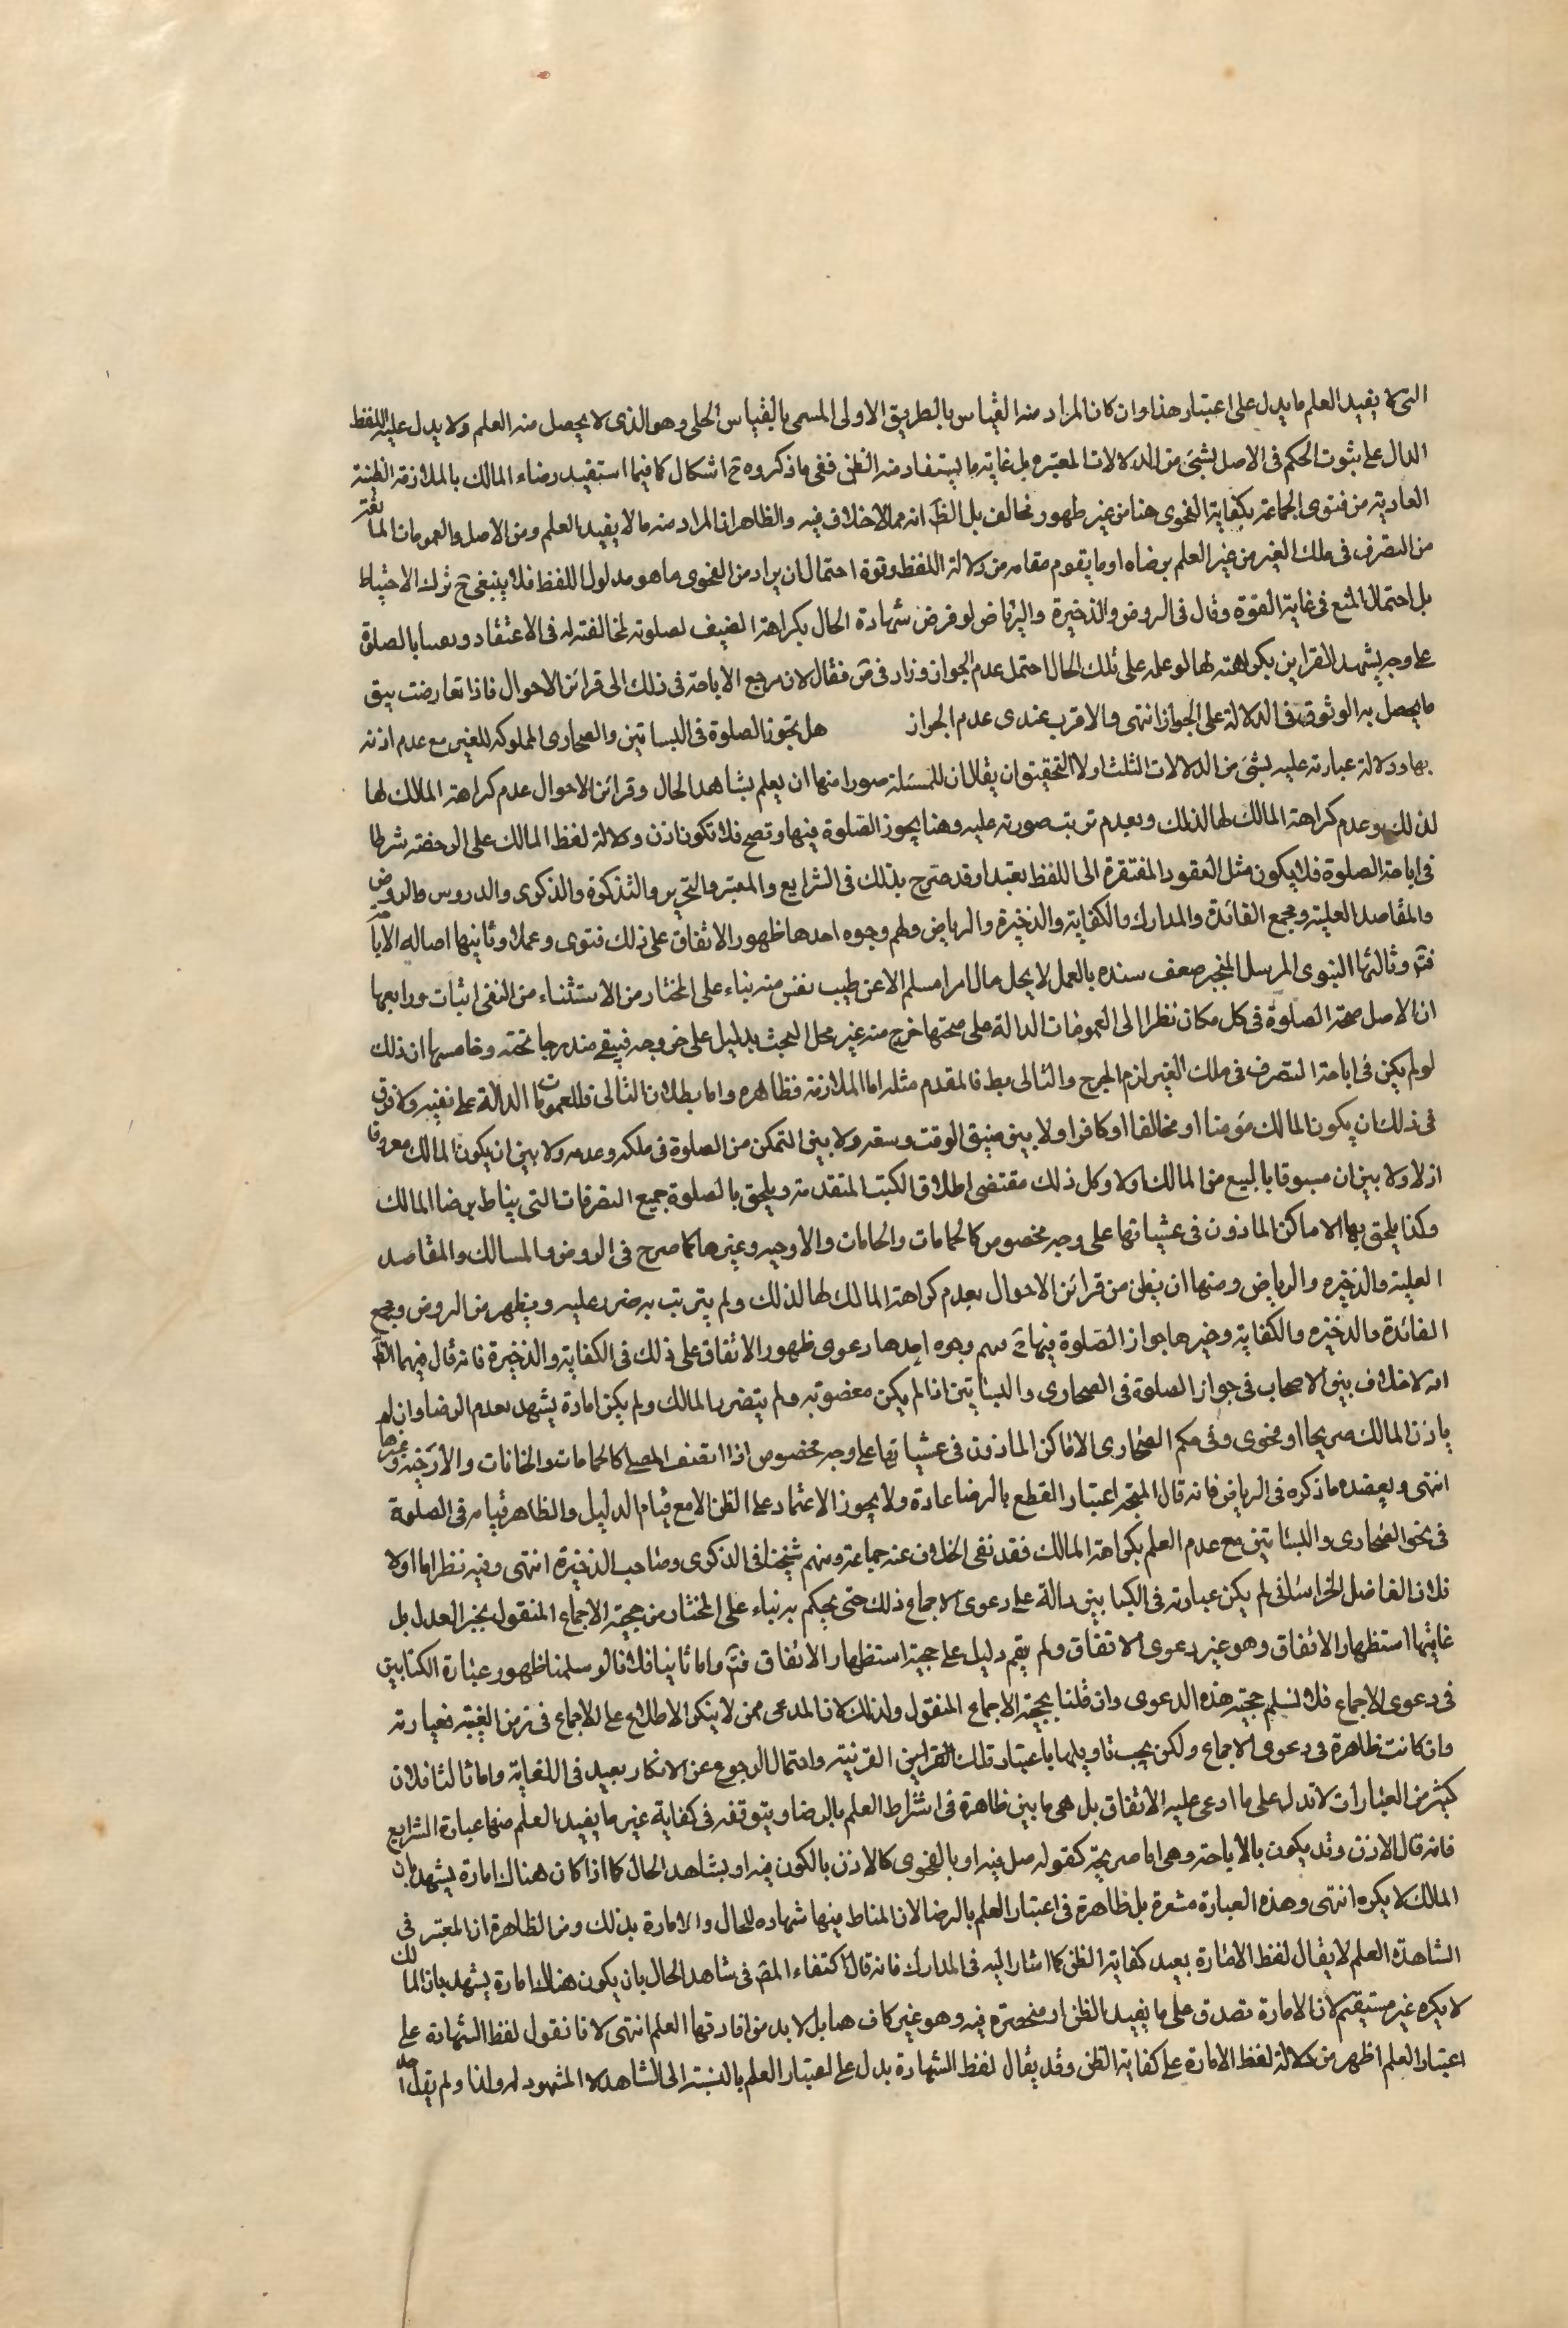 التى لا يفيد العلم ما يدل على اعتبار هذا وان كان المراد منه القياس بالطريق الاولى المسمى بالقياس الجلى وهو الذى لا يحصل منه العلم ولا يدل عليه اللفظ
الدال على ثبوت الحكم فى الاصل بشئ من الدلالات المعتبره بل غايته ما يستفاد منه الظن ففى ما ذكروه ح اشكال كما فيما استفيد رضاء المالك بالملازمة الظنية
العادية من فتوى الجماعة بكفاية الفحوى هنا من غير ظهور مخالف بل الظ انه مما لا خلاف فيه والظاهر ان المراد منه ما لا يفيد العلم ومن الاصل والعمومات المانعة
من التصرف فى ملك الغير من غير العلم برضاه او ما يقوم مقامه من دلالة اللفظ وقوة احتمال ان يراد من الفحوى ما هو مدلول اللفظ فلا ينبغى ح ترك الاحتياط
بل احتمال المنع فى غاية القوة وقال فى الروض والذخيرة والرياض لو فرض شهادة الحال بكراهة المضيف لصلوته لمخالفته له فى الاعتقاد بالصلوة
على وجه يشهد القراين بكراهته لها لو علمه على تلك الحال احتمل عدم الجواز وزاد فى ض فقال لان مرجع الاباحة فى ذلك الى قرائن الاحوال فاذا تعارضت يبق
ما يحصل به الوثوق فى الدلالة على الجواز انتهى والاقرب عندى عدم الجواز هل يجوز الصلوة فى البساتين والصحارى المملوكه للغير مع عدم اذنه
بها ودلالة عبارته عليه بشئ من الدلالات الثلث اولا التحقيق ان يقال ان للمسئلة صورا منها ان يعلم بشاهد الحال وقرائن الاحوال عدم كراهة المالك لها
لذلك وعدم كراهة المالك لها لذلك وبعدم ترتب صورته عليه وهنا يجوز الصلوة فيها وتصح فلا تكون اذن ودلالة لفظ المالك على الرخصة شرطا
فى اباحة الصلوة فلا يكون مثل العقود المفتقرة الى اللفظ تعبدا وقد صرح بذلك فى الشرايع والمعتبر والتحرير والتذكرة والذكرى والدروس والروض
والمقاصد العلية ومجمع الفائدة والمدارك والكفاية والذخيرة والرياض ولهم وجوه احدها ظهور الاتفاق على ذلك فتوى وعملا وثانيها اصالة الاباحة
فتم وثالثها النبوى المرسل المنجبر ضعف سنده بالعمل لا يحل مال امرا مسلم الا عن طيب نفس منه بناء على المختار من الاستثناء من النفى اثبات ورابعها
ان الاصل صحة الصلوة فى كل مكان نظرا الى العمومات الدالة على صحتها خرج منه غير محل البحث بدليل على خروجه فيبقى مندرجا تحته وخامسها ان ذلك
لو لم يكن فى اباحة التصرف فى ملك الغير لزم الحرج والتالى بط فالمقدم مثله اما الملازمة فظاهره واما بطلان التالى فللعمومات الدالة على نفيه ولا فرق
فى ذلك ان يكون المالك مؤمنا او مخالفا او كافرا ولا بين ضيق الوقت وسعته ولا بين التمكن من الصلوة فى ملكه وعدمه ولا بين ان يكون المالك معروفا
او لا ولا بين ان مسبوقا بالبيع من المالك او لا وكل ذلك مقتضى اطلاق الكتب المتقدمة ويلحق بالصلوة جميع التصرفات التى يناط برضا المالك
وكذا يلحق بها الاماكن الماذون فى غشيانها على وجه مخصوص كالحمامات والخانات والارحيه وغيرها كما صرح فى الروض والمسالك والمقاصد
العلية والذخيره والرياض ومنها ان يظن من قرائن الاحوال بعدم كراهة المالك لها لذلك ولم يترتب به ضرر عليه ويظهر من الروض ومجمع
الفائدة والذخيره والكفاية وغيرها جواز الصلوة فيها ح ولهم وجوه احدها دعوى ظهور الاتفاق على ذلك فى الكفاية والذخيرة فانه قال فيهما الظ
انه لا خلاف بين الاصحاب فى جواز الصلوة فى الصحارى والبساتين اذا لم يكن مغصوبة ولم يتضرر المالك ولم يكن امارة يشهد بعدم الرضا وان لم
ياذن المالك صريحا او فحوى وفى حكم الصحارى الاماكن الماذون فى غشيانها على وجه مخصوص اذا اتصف المصلى كالحمامات والخانات والارحيه وغيرها
انتهى ويعضده ما ذكره فى الرياض فانه قال المتجه اعتبار القطع بالرضا عادة ولا يجوز الاعتماد على الظن الا مع قيام الدليل والظاهر قيامه فى الصلوة
فى نحو الصحارى والبساتين مع عدم العلم بكراهة المالك فقد نفى الخلاف عنه جماعة ومنهم شيخنا فى الذكرى وصاحب الذخيرة انتهى وفيه نظر اما اولا
فلان الفاضل الخراسانى لم يكن عبارته فى الكتابين دالة على دعوى الاجماع ذلك حتى يحكم به بناء على المختار من حجية الاجماع المنقول بخبر العدل بل
غايتها استظهار الاتفاق وهو غير دعوى الاتفاق ولم يقم دليل على حجية استظهار الاتفاق فتم واما ثانيا فلانا لو سلمنا ظهور عبارة الكتابين
فى دعوى الاجماع فلا نسلم حجية هذه الدعوى وان قلنا بحجية الاجماع المنقول ولذلك لان المدعى ممن لا ينكر الاطلاع على الاجماع فى زمن الغيبة فعبارته
وان كانت ظاهرة فى دعوى الاجماع ولكن يجب تاويلها باعتبار تلك القراين القرينة واحتمال الرجوع عن الانكار بعيد فى الغاية واما ثالثا فلان
كثير من العبارات لا تدل على ما ادعى عليه الاتفاق بل هى ما بين ظاهرة فى اشتراط العلم بالرضا ويتوقفه فى كفاية غير ما يفيد العلم منها عبارة الشرايع
فانه قال الاذن وقد يكون بالاباحة وهى اما صريحة كقوله صل فيه او بالفحوى كالاذن بالكون فيه او بشاهد الحال كما اذا كان هناك امارة يشهد بان
المالك لا يكره انتهى وهذه العبارة مشعرة بل ظاهرة فى اعتبار العلم بالرضا لان المناط فيها شهاده للحال والامارة بذلك ومن الظاهرة ان المعتبر فى
الشاهدة العلم لا يقال لفظ الامارة بعيد كفاية الظن كما اشار اليه فى المدارك فانه قال اكتفاء المص فى شاهد الحال بان يكون هناك امارة يشهد بان المالك
لا يكره غير مستقيم لان الامارة تصدق على ما يفيد الظن او منحصرة فيه وهو غير كاف هنا بل لا بد من افادتها العلم انتهى لانا نقول لفظ الشهادة على
اعتبار العلم اظهر من دلالة لفظ الامارة على كفاية الظن وقد يقال لفظ الشهادة يدل على اعتبار العلم بالنسبة الى الشاهد لا المشهود له ولذا ولم يقل احد